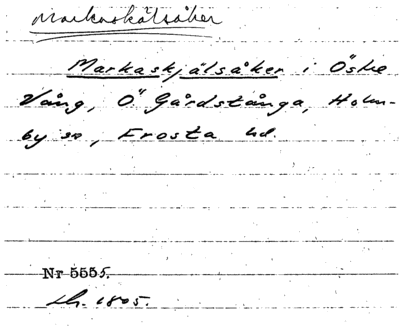 Markaskälsåker
Markaskjälsåker i Östre
Vång, Ö Gårdstånga, Holm-
by sn, Frosta hd.
Nr 5555.
1805.